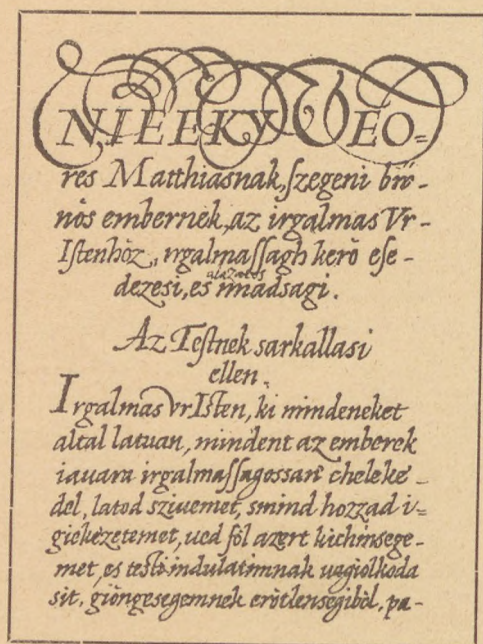 NIEEKY VEO=
res Matthiasnak, szegeni bű-
nôs embernek, az irgalmas Vr-
Istenhôz, irgalmassagh kerô ese-
alazatos
dezesi, es imadsagi.
Az Testnek sarkallasi
ellen.
Irgalmas VrIsten, ki mindeneket
altal latuan, mindent az emberek
iauara irgalmassagossan cheleke-
del, latod sziuemet, smind hozzad i-
giekezetemet, ued fôl azert kichinsege-
met, es testi indulatimnak uagiolkoda
sit, giôngesegemnek erôtlensegibôl, pa-